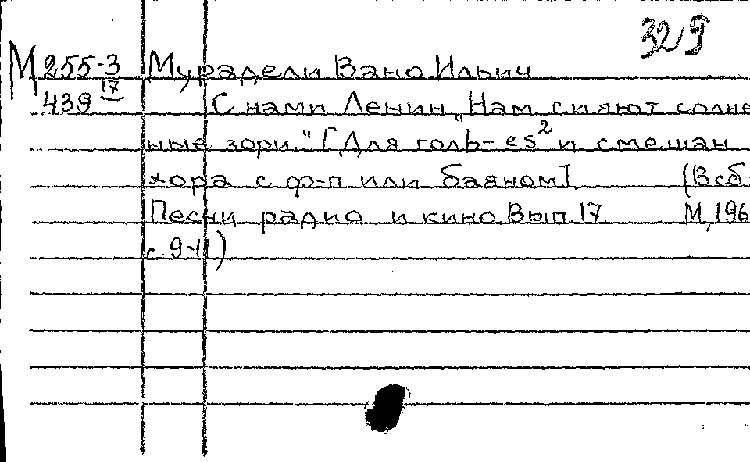 329
М 255-3 Мурадели Вано Ильич
439 17 С нами Ленин „Нам сияют солнеч
ные зори." [Для гол
b-es² и смешан
хора с ф-п или баяном] (В сб.
Песни радио и кино. Вып. 17 М, 196
с. 9-11)